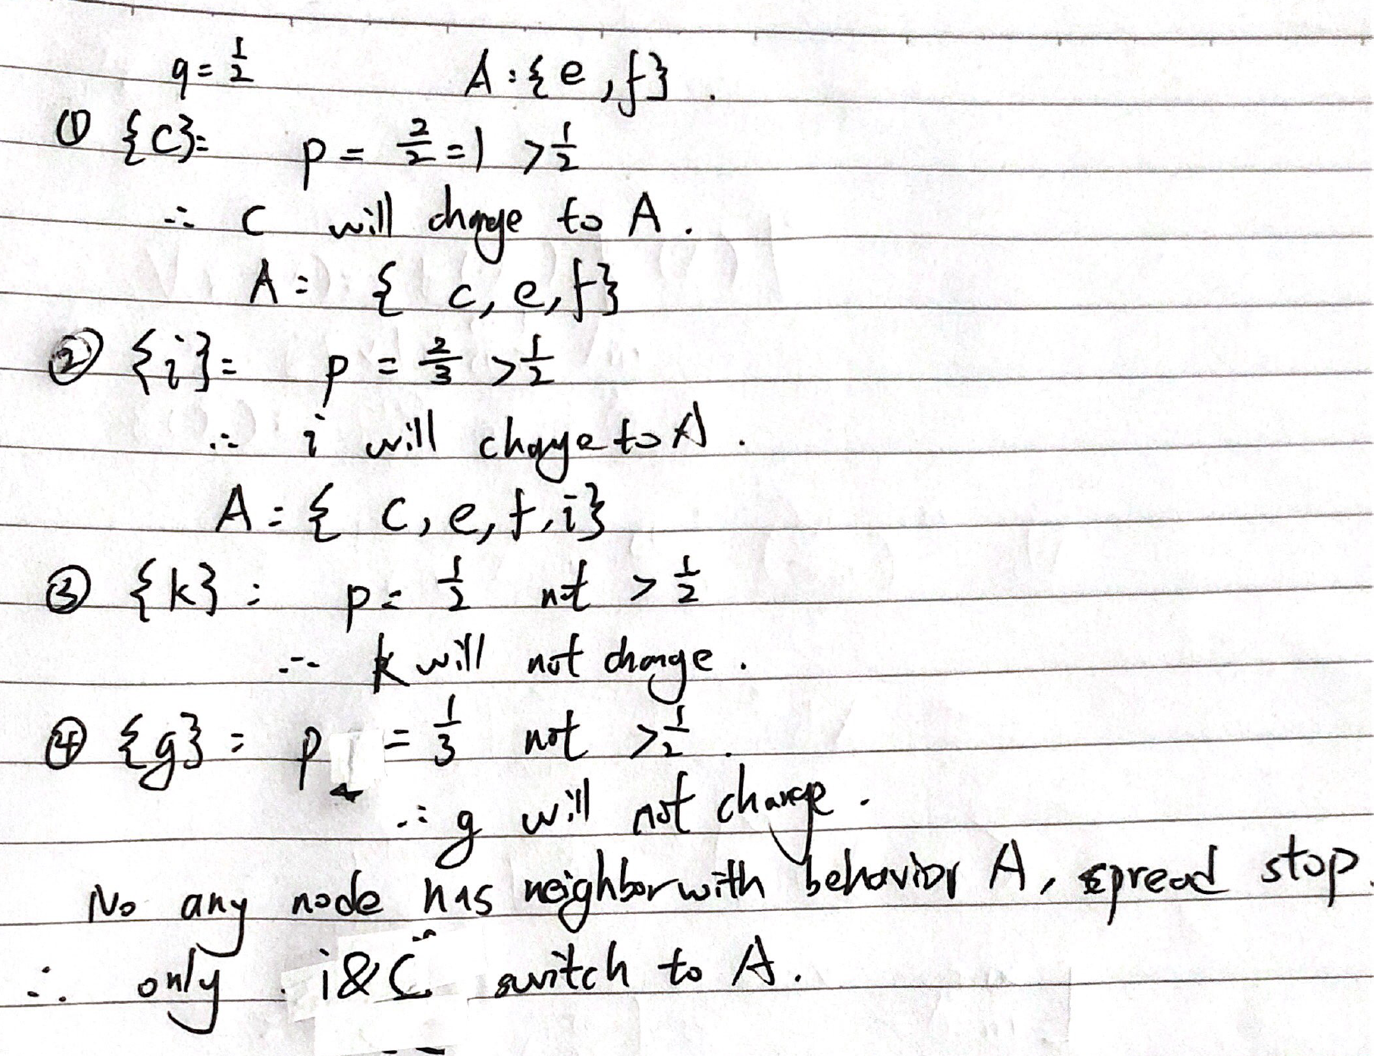 q = 1/2 A: {e, f}.
① {c}: p = 2/2 = 1 > 1/2
∴ c will change to A.
A = { c, e, f}
② {i}: p = 2/3 > 1/2
∴ i will change to A.
A = { c, e, f, i}
③ {k} : p = 1/2 not > 1/2
∴ k will not change.
④ {g} : p = 1/3 not > 1/2.
∴ g will not change.
No any node has neighbor with behavior A, spread stop.
∴ only i & c switch to A.